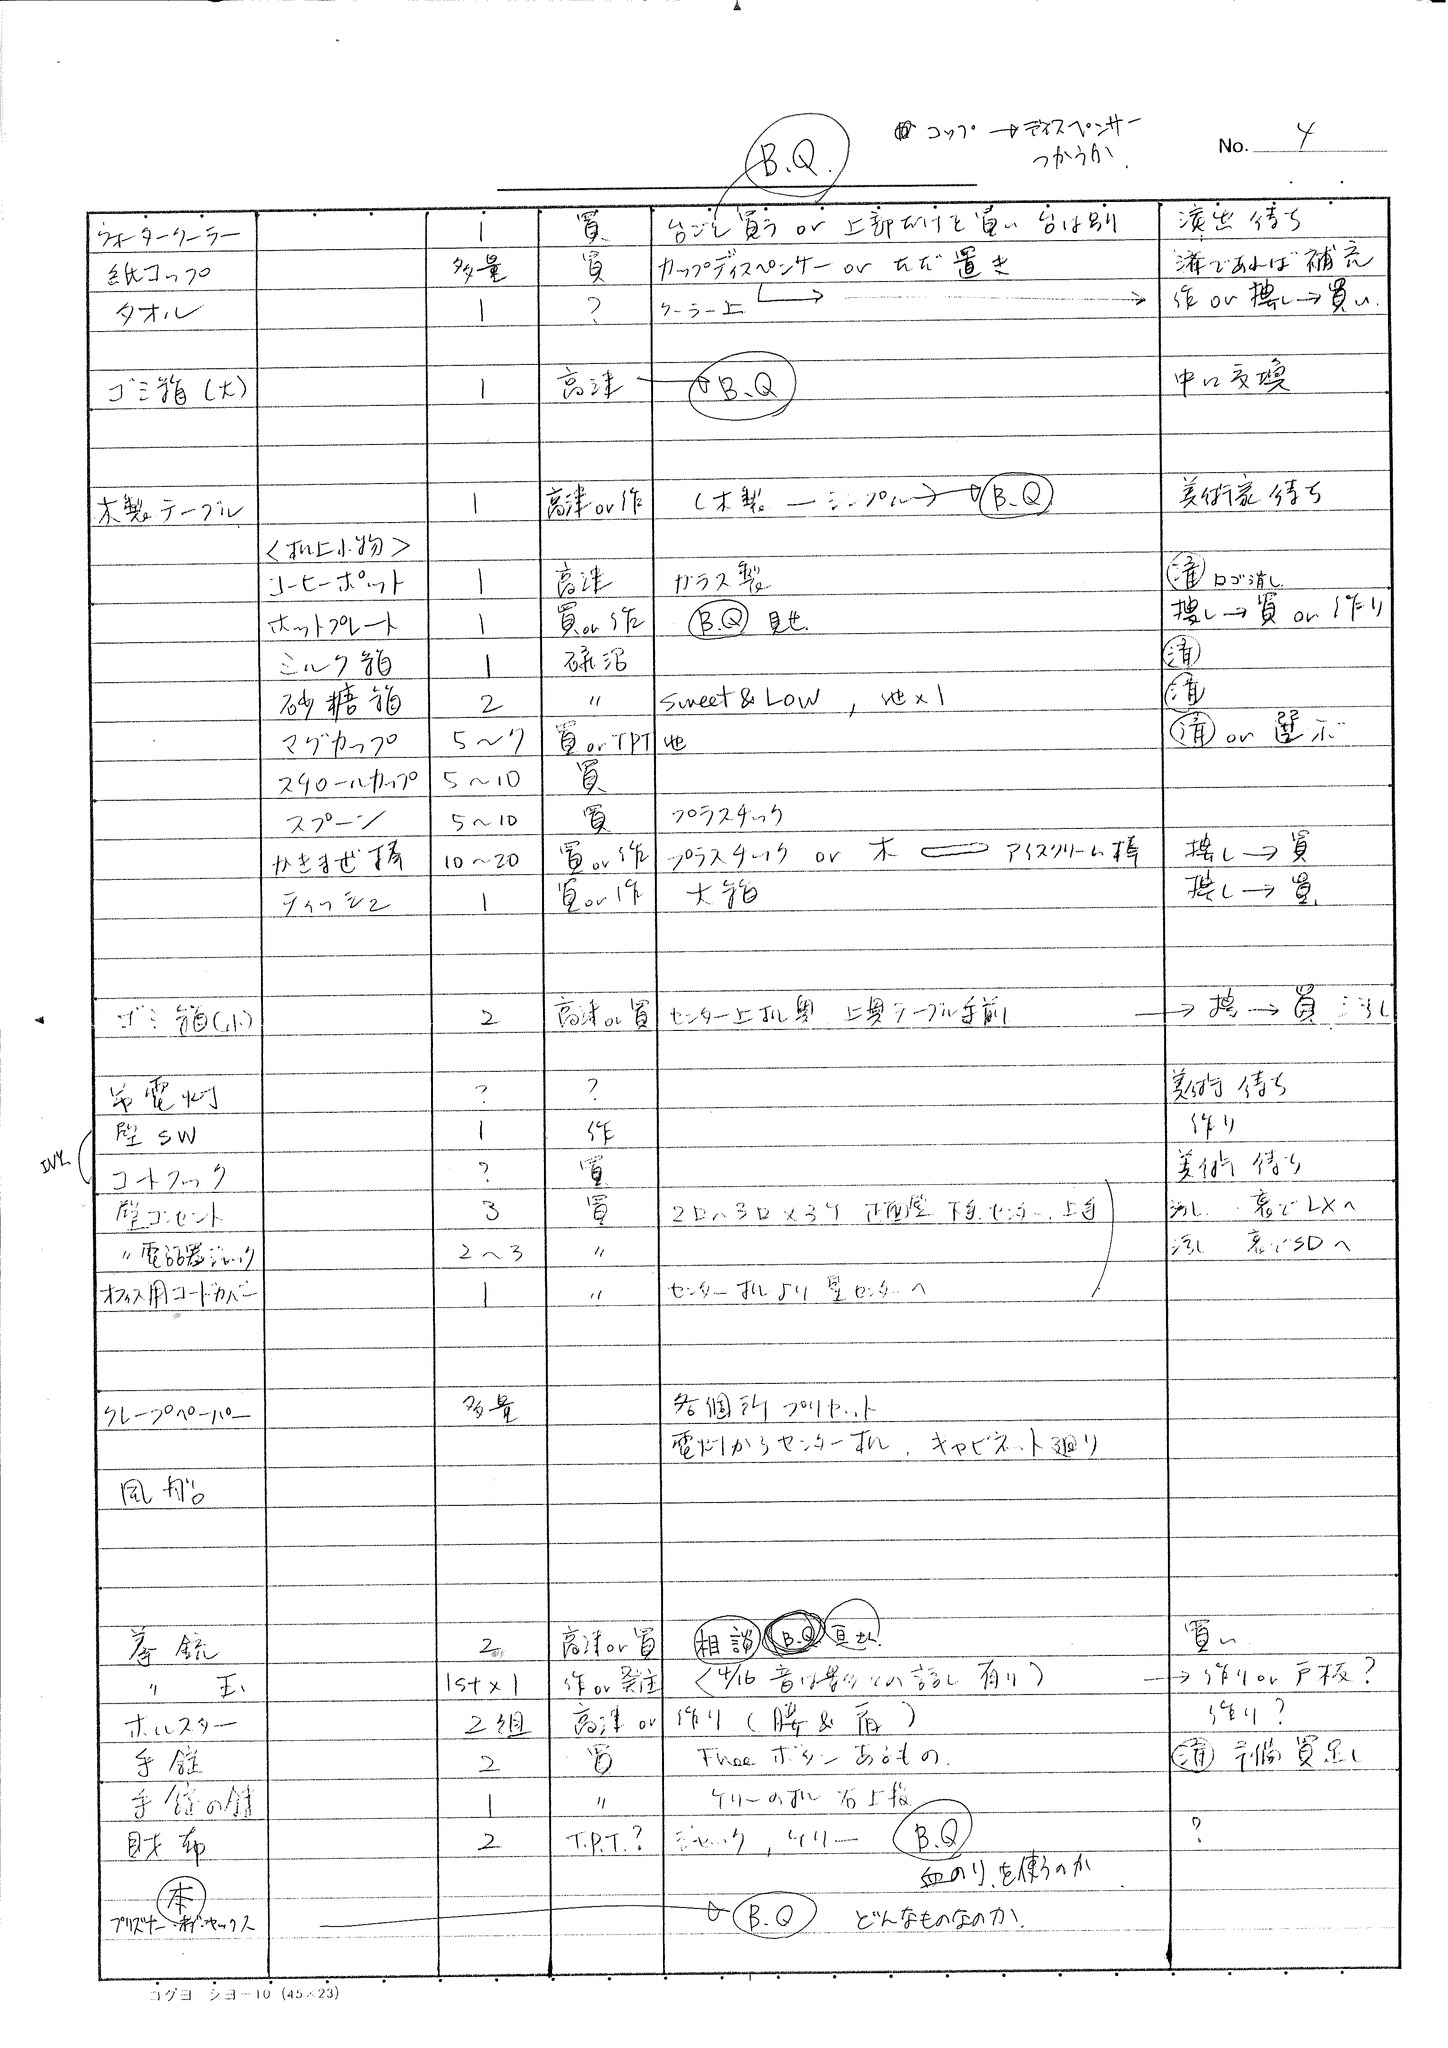 コップ → ディスペンサー
つかうか
No. 4
B.Q.
ウォータークーラー 1 買 台ごと買う or 上部だけを買い 台は別 演出待ち
紙コップ 多量 買 カップディスペンサー or ただ置き 済であれば補充
タオル 1 ? クーラー上 → → 作 or 捜し→買い
ゴミ箱(大) 1 高津 → B.Q 中口交換
木製テーブル 1 高津or作 (木製 ― シンプル → B.Q 美術家待ち
<机上小物>
コーヒーポット 1 高津 ガラス製 済 ロゴ消し
ホットプレート 1 買or作 B.Q 見せ 捜し→買 or 作り
ミルク箱 1 磯沼 済
砂糖箱 2 〃 Sweet & Low , 他×1 済
マグカップ 5〜7 買orTPT 他 済 or 選ぶ
スチロールカップ 5〜10 買
スプーン 5〜10 買 プラスチック
かきまぜ棒 10〜20 買or作 プラスチック or 木 アイスクリーム棒 捜し→買
ティッシュ 1 買or作 大箱 捜し→買
ゴミ箱(小) 2 高津or買 センター上机奥 上奥テーブル手前 → 捜→買
吊電灯 ? ? 美術待ち
壁SW 1 作 作り
コートフック ? 買 美術待ち
壁コンセント 3 買 2口〜3口×3ケ 正面壁 下手.センター.上手 裏でLXへ
〃電話器ジャック 2〜3 〃 裏でSDへ
オフィス用コードカバー 1 〃 センター机より 壁センターへ
クレープペーパー 多量 各個所プリセット
電灯からセンター机、キャビネット廻り
風船
拳銃 2 高津or買 相談 B.Q. 見せ 買い
〃 玉 1st×1 作or発注 (4/16 音は 話し有り) → 作りor戸板?
ホルスター 2組 高津or 作り (腰&肩) 作り?
手錠 2 買 Free ボタンあるもの. 済 予備買足し
手錠の鍵 1 〃 ケリーの机 右上段
財布 2 T.P.T.? ジャック, ケリー B.Q ?
血のりを使うのか
本
プリズナー・オブ・セックス → B.Q どんなものなのか.
コクヨ ショ-10 (45×23)